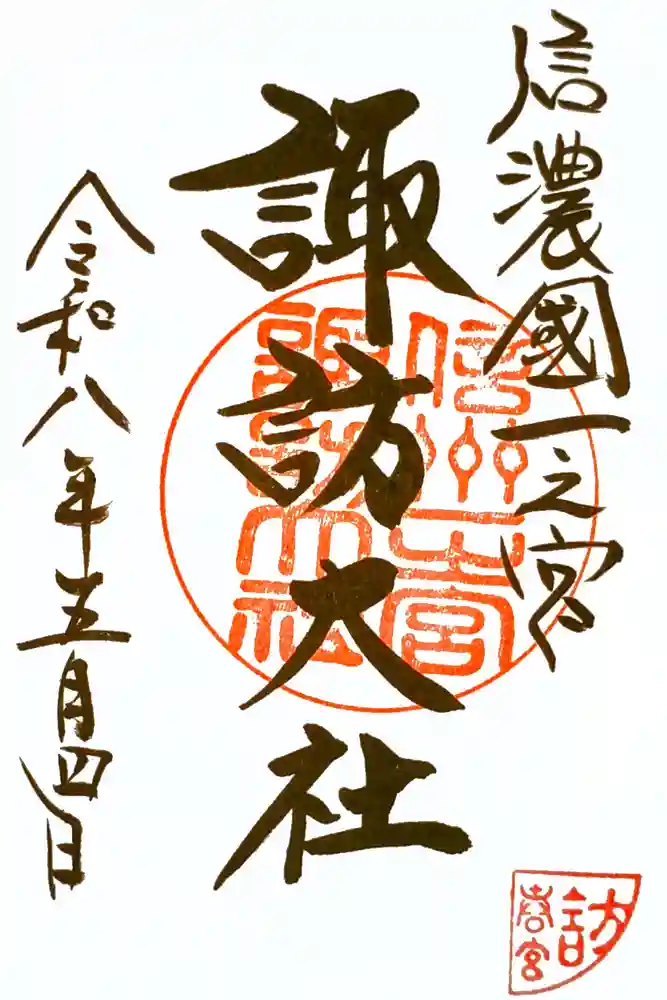 信濃國一之宮
諏訪大社
令和八年五月四日
信州一宮
諏訪大社
訪
春宮